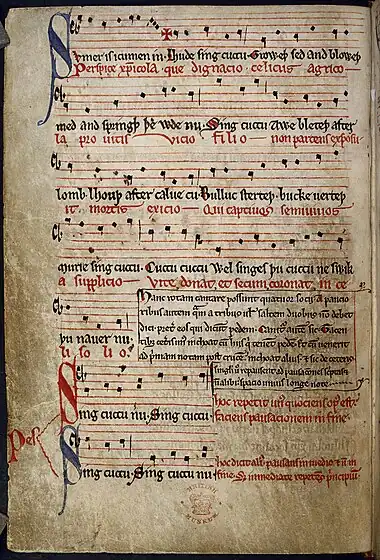 Svmer is icumen in. Lhude sing cuccu. Groweþ sed and bloweþ
Perspice xpicola. que dignacio. celicus agrico-
med and springþ þe wde nu. Sing cuccu Awe bleteþ after
la pro uitis vicio filio non parcens exposu-
lomb. lhouþ after calue cu. Bulluc sterteþ. bucke uerteþ
it mortis exicio Qui captiuos semiuiuos
murie sing cuccu. Cuccu cuccu Wel singes þu cuccu ne swik
a supplicio Vite donat et secum coronat in ce
þu nauer nu.
li solio.
Hanc rotam cantare possunt quatuor socij. A paucio
ribus autem quam a tribus uel saltem duobus non debet
dici. preter eos qui dicunt pedem. Canitur autem sic. Tacen
tibus ceteris unus inchoat cum hijs qui tenent pedem. Et cum uenerit
ad primam notam post crucem. inchoat alius. et sic de ceteris.
singuli uero repausent ad pausaciones scriptas
non alibi spacio unius longe note.
Sing cuccu nu. Sing cuccu.
hoc repetit unus quociens opus est
faciens pausacionem in fine
Pes
Sing cuccu. Sing cuccu nu
hoc dicit alius pausans in medio et non in
fine. Set inmediate repetens principium